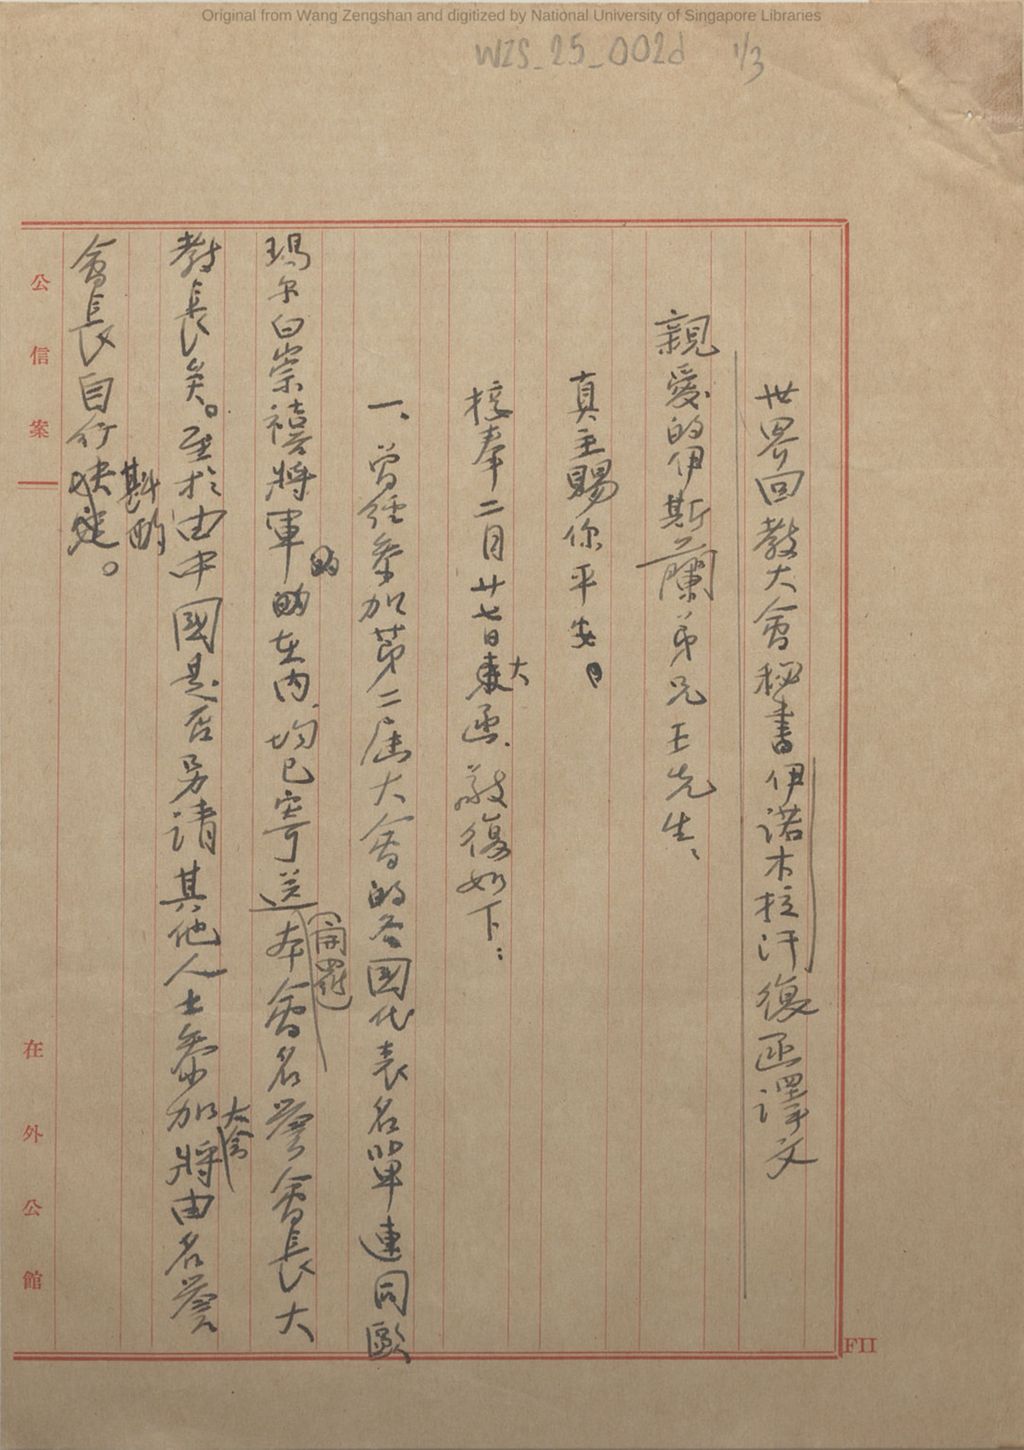 Original from Wang Zengshan and digitized by National University of Singapore Libraries
WZS_25_002d 1/3
世界回教大會秘書伊諾木拉汗復函譯文
親愛的伊斯蘭弟兄王先生、
真主賜你平安。
接奉二月廿七日大函、敬復如下：
一、曾經參加第二屆大會的各國代表名單連同歐
瑪尔白崇禧將軍的在內、均已寄送（開羅）本會名譽會長大
教長矣。至於由中國是否另請其他人士參加大會將由名譽
會長自行斟酌。
公信案
在外公館
FII